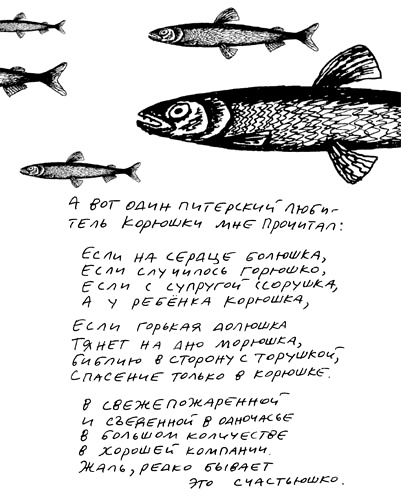 А вот один питерский люби-
тель корюшки мне прочитал:
Если на сердце болюшка,
Если случилось горюшко,
Если с супругой ссорушка,
А у ребёнка корюшка,
Если горькая долюшка
Тянет на дно морюшка,
Библию в сторону с Торушкой,
Спасение только в корюшке.
В свежепожаренной
и съеденной в одночасье
в большом количестве
в хорошей компании.
Жаль, редко бывает
это счастьюшко.